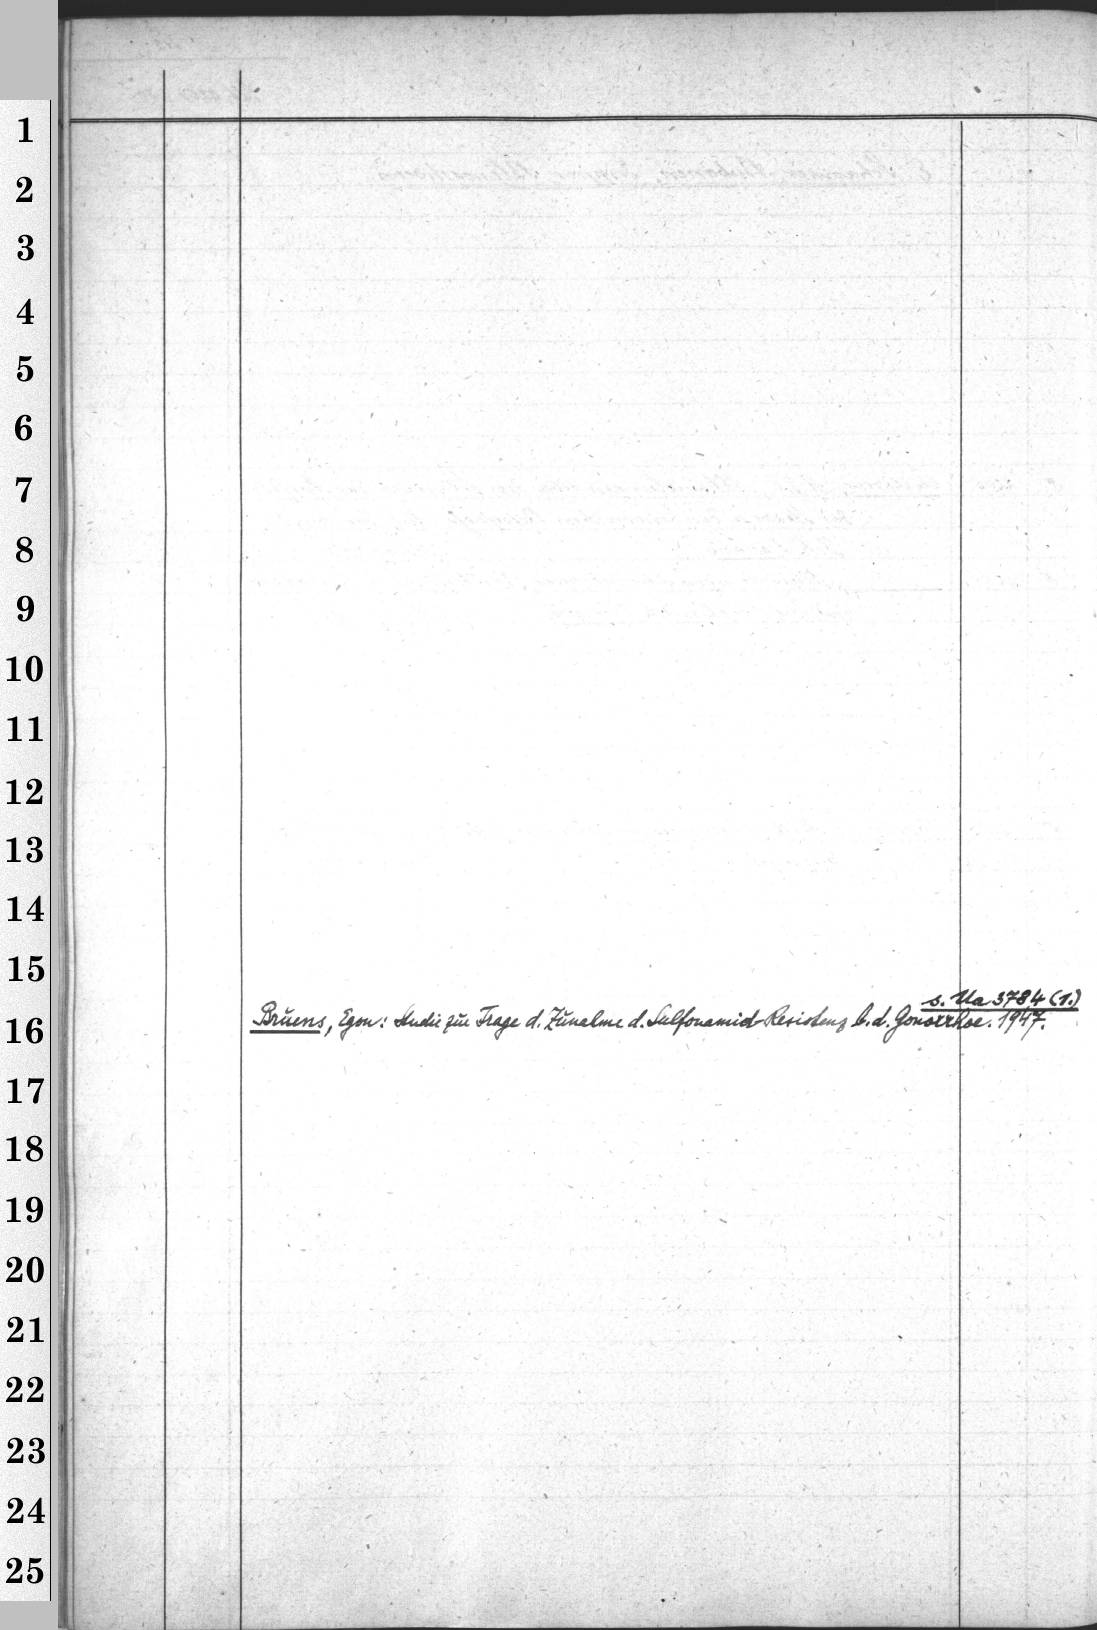 1
2
3
4
5
6
7
8
9
10
11
12
13
14
15
s. Ua 3784 (1.)
Bruens, Egon: Studie zur Frage d. Zunalme d. Sulfonamid-Resistenz b. d. Gonorrhoe. 1947.
16
17
18
19
20
21
22
23
24
25